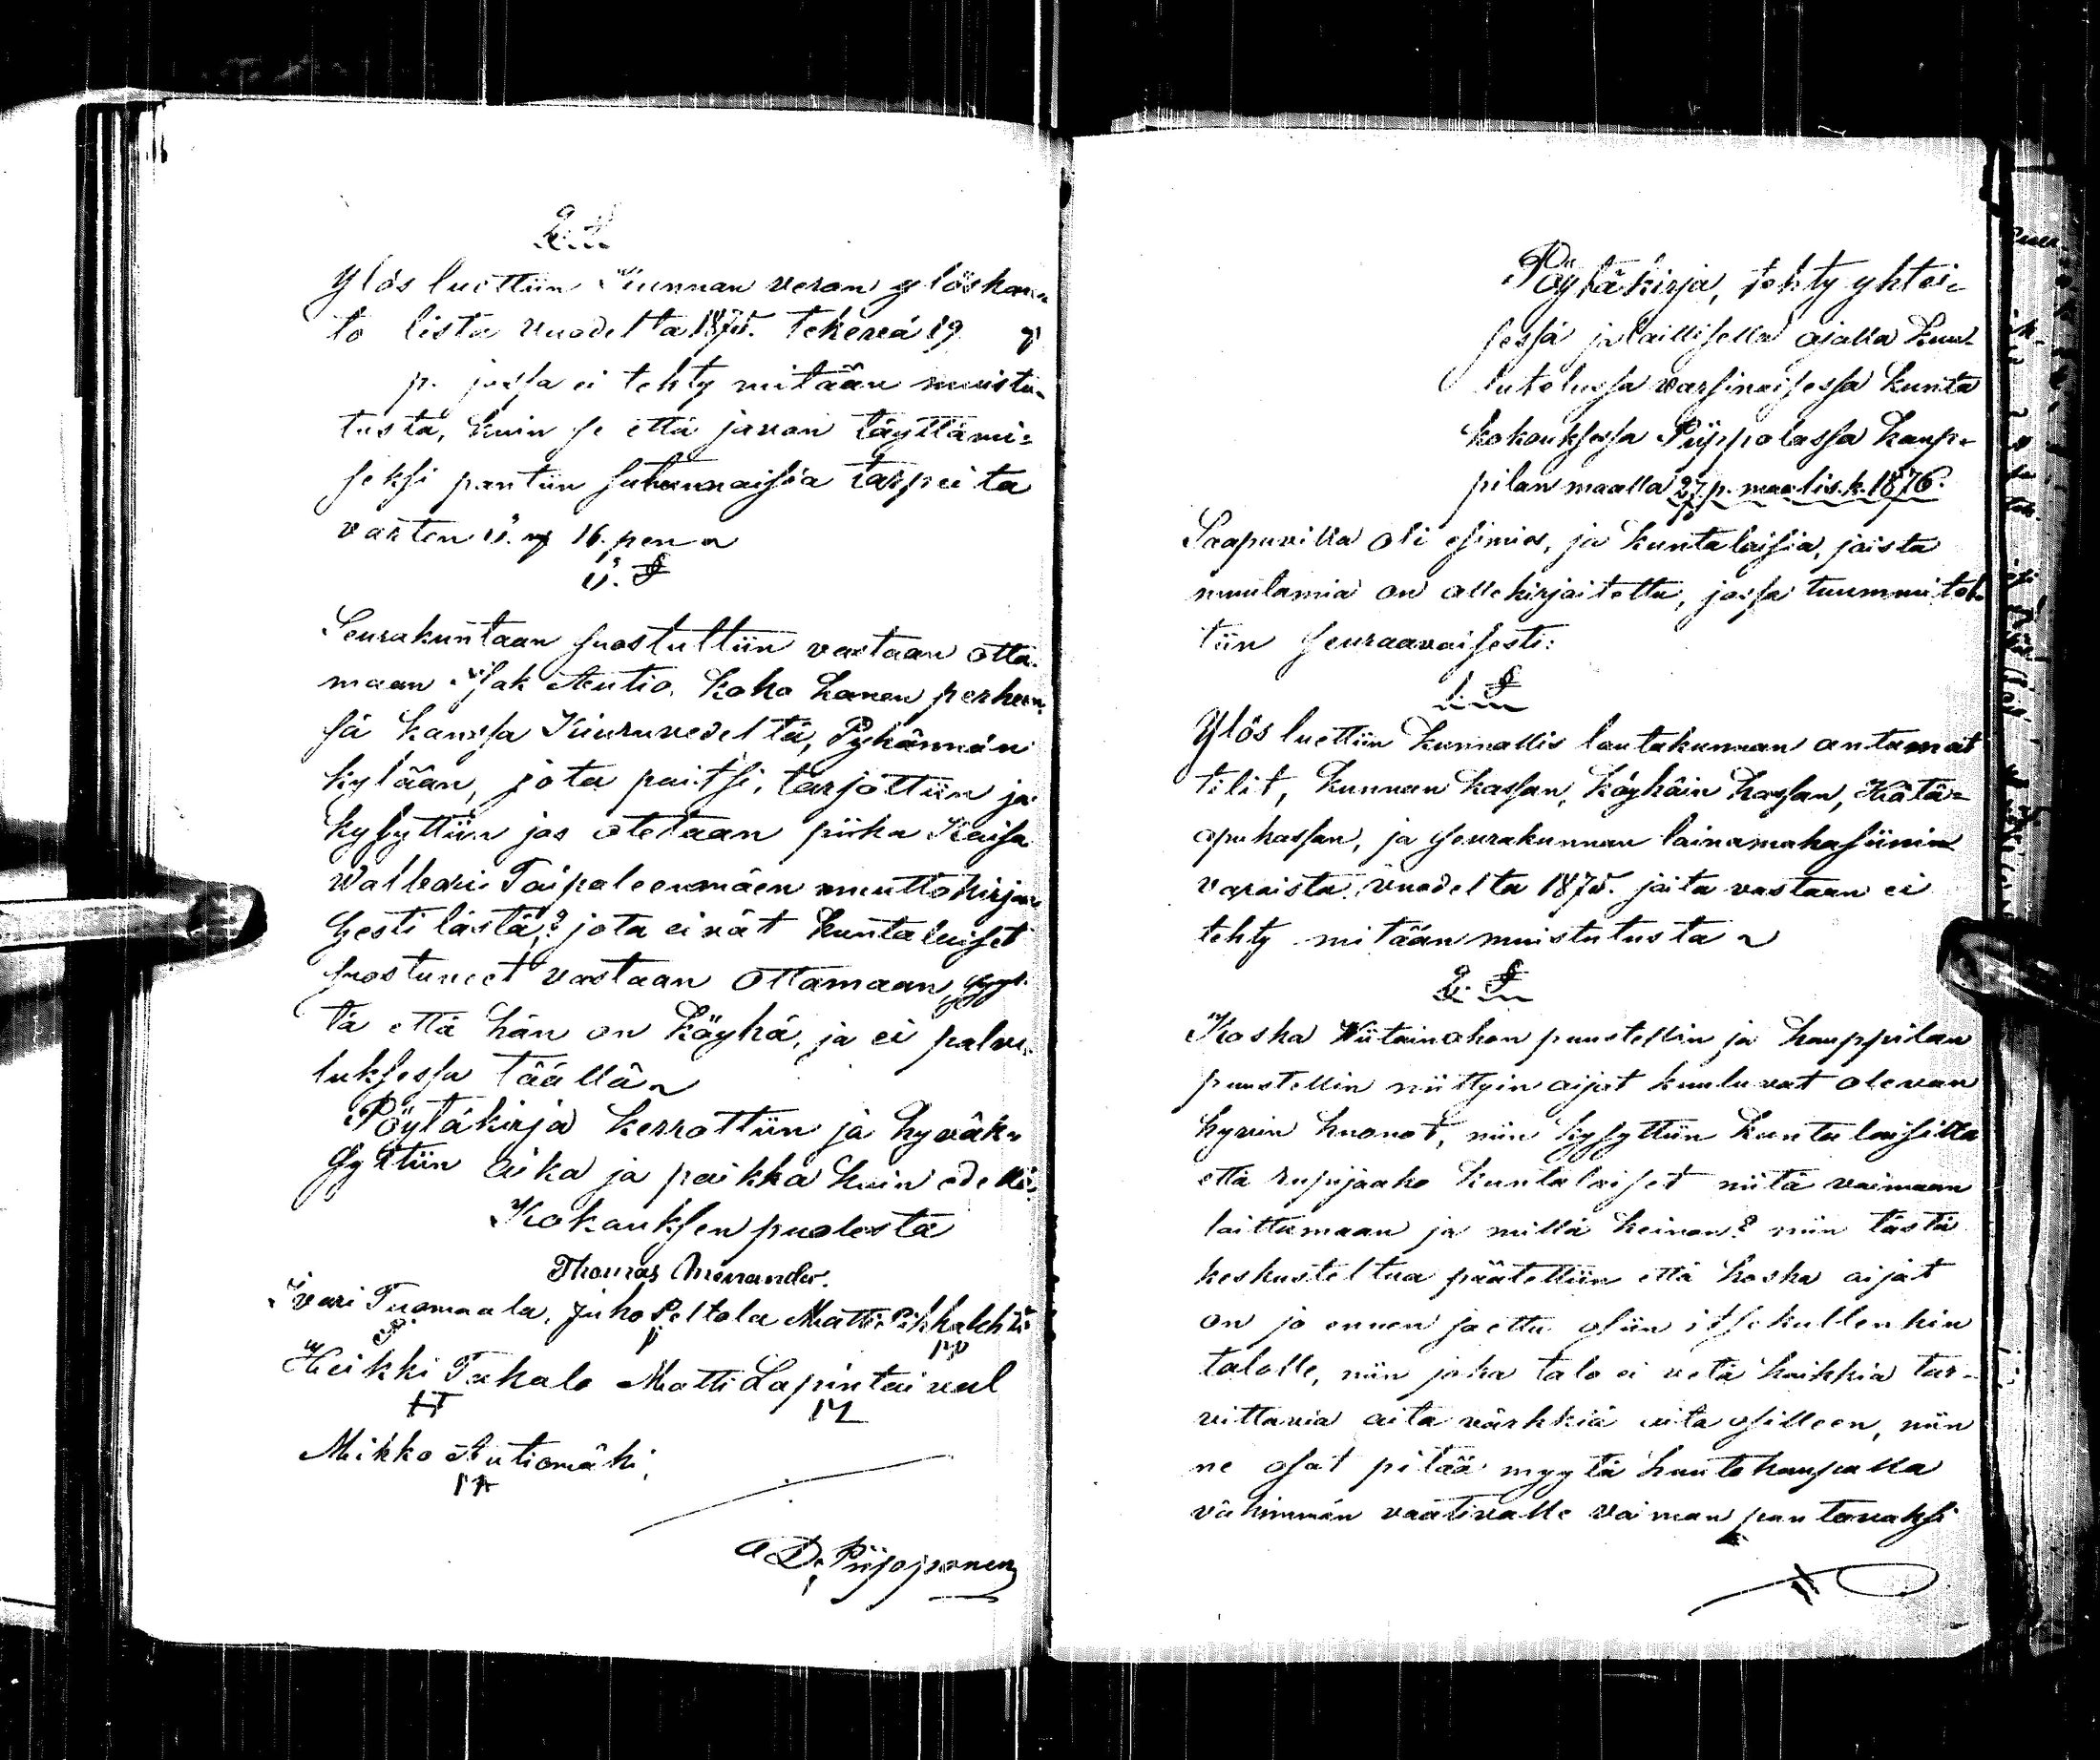 2. §
Ylös luettiin Kunnan veron ylöskan-
to lista vuodelta 1875. tekevä 19
p. jossa ei tehty mitään muistu-
tusta, kuin se että javon täyttämi=
seksi pantiin satunnaisia tarpeita
varten 16. pen
3. §
Seurakuntaan suostuttiin vastaan otta-
maan Isak Autio, koko hänen perheen-
sä kanssa Kiuruvedeltä, Pyhännän
kylään, jota paitsi, tarjottiin ja
kysyttiin jos otetaan piika Kaisa
Walbori Taipaleenmäen muuttokirja
Pestilästä? jota eivät kuntalaiset
suostuneet vastaan ottamaan syys-
tä että hän on köyhä, ja ei palve-
luksessa täällä
Pöytäkirja kerrottiin ja hyväk-
syttiin aika ja paikka kuin edellä
Kokouksen puolesta
Thomas Menander.
Ivari Tuomaala, Juho Peltola Matti Pikkalehto
Heikki Takalo Matti Lapintaival
HT
Mikko Autiomäki,
A D. Piipponen
Pöytäkirja, tehty yhtei-
sessä ja laillisella ajalla kuu-
lutetussa varsinaisessa kunta
kokouksessa Piippolassa Kaup-
pilan maalla 27. p. maalis.k. 1876.
Saapuvilla oli esimies, ja kuntalaisia, joista
muutamia on allekirjoitettu, jossa tuumuitel-
tiin seuraavaisesti:
1. §
Ylös luettiin kunnallis lautakunnan antamat
tilit, kunnan kassan, köyhäin kassan, Hätä=
apukassan, ja seurakunnan lainamakasiinin
varoista, vuodelta 1875. joita vastaan ei
tehty mitään muistutusta
2. §
Koska Wiitainohon puustellin ja kauppilan
puustellin niittyin aijat kuuluvat olevan
hyvin huonot, niin kysyttiin kuntalaisilta
että rupijaako kuntalaiset niitä voimaan
laittamaan ja millä keinon? niin tästä
keskusteltua päätettiin että koska aijat
on jo ennen jaettu osiin itsekullenkin
talolle, niin joka talo ei vetä kaikkia tar-
vittavia aita värkkiä aita osilleen, niin
ne osat pitää myytä huutokaupalla
vähimmän vaativalle voiman pantavaksi